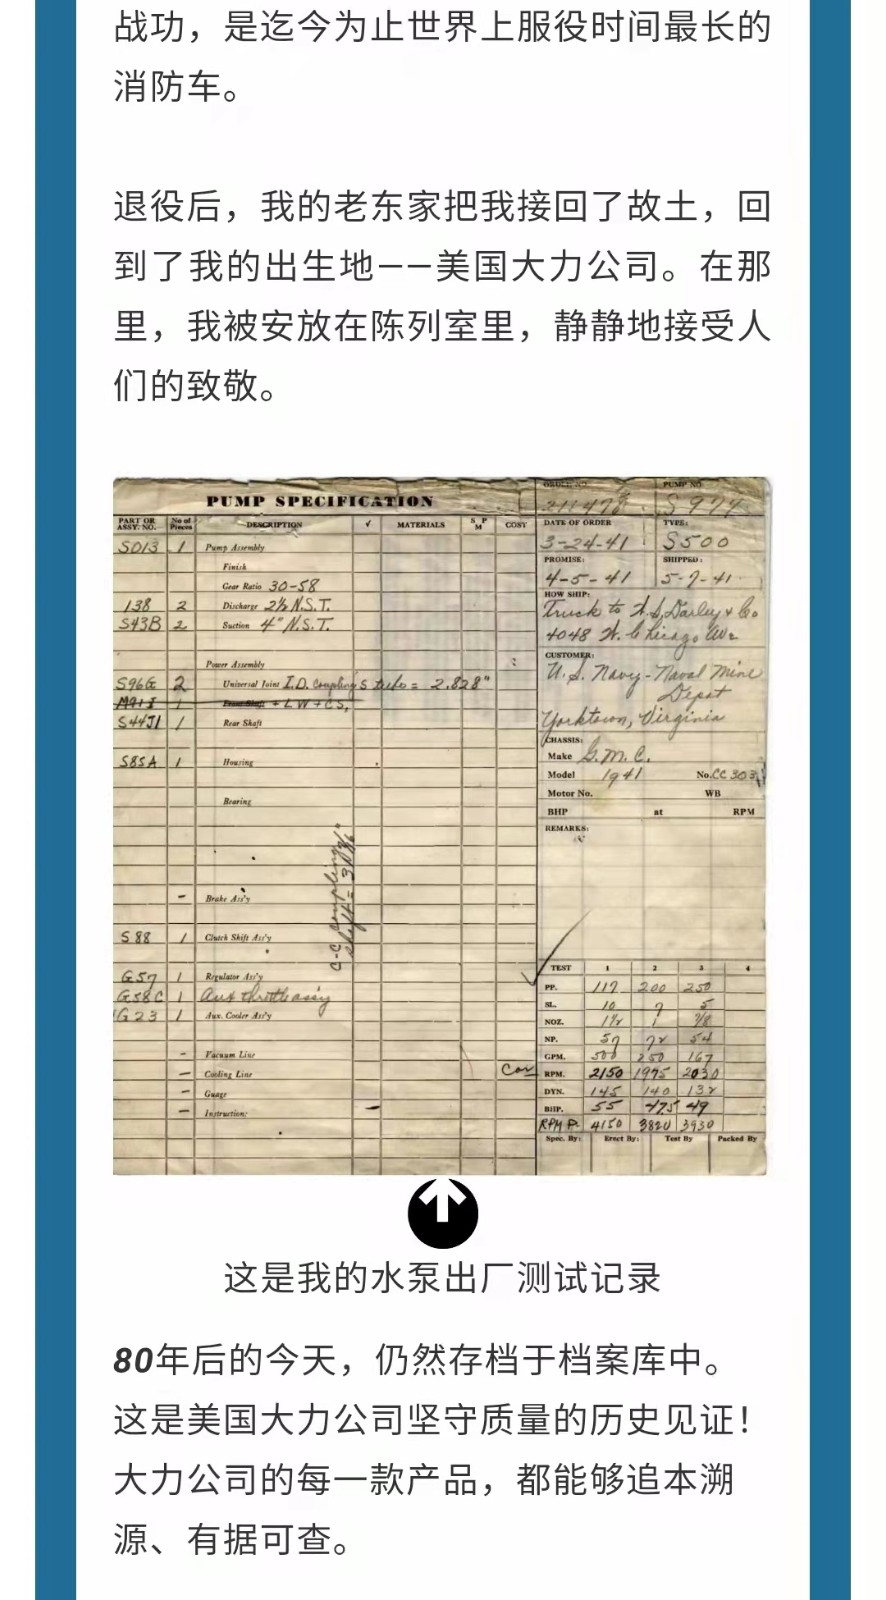 战功，是迄今为止世界上服役时间最长的
消防车。
退役后，我的老东家把我接回了故土，回
到了我的出生地——美国大力公司。在那
里，我被安放在陈列室里，静静地接受人
们的致敬。
PUMP SPECIFICATION
ORDER NO. PUMP NO.
PART OR ASSY. NO. No of Pieces DESCRIPTION ✓ MATERIALS S P M COST
DATE OF ORDER TYPE:
3-24-41 S500
PROMISE: SHIPPED:
4-5-41 5-7-41
HOW SHIP:
Truck to W.S. Darley & Co
4048 W. Chicago Ave
CUSTOMER:
U.S. Navy-Naval Mine
Depot
Yorktown, Virginia
CHASSIS:
Make G.M.C.
Model 1941 No. CC 303
Motor No. WB
BHP at RPM
REMARKS:
S013 1 Pump Assembly
Finish
Gear Ratio 30-58
138 2 Discharge 2½ N.S.T.
S43B 2 Suction 4" N.S.T.
Power Assembly
S96G 2 Universal Joint I.D. couplings = 2.828"
Front Shaft
S44J1 1 Rear Shaft
S85A 1 Housing
Bearing
C-C coupling
shaft =
- Brake Ass'y
S88 1 Clutch Shift Ass'y
G57 1 Regulator Ass'y
G58C 1 Aux throttle assy
G23 1 Aux. Cooler Ass'y
- Vacuum Line
- Cooling Line
- Guage
- Instruction:
TEST 1 2 3 4
PP. 117 200 250
SL. 10 7 5
NOZ. 1 7/8
NP. 57 72 54
GPM. 500 250 167
RPM. 2150 1975 2030
DYN. 145 140 132
BHP. 55 475 49
RPM P. 4150 3820 3930
Spec. By: Erect By: Test By Packed By
这是我的水泵出厂测试记录
80年后的今天，仍然存档于档案库中。
这是美国大力公司坚守质量的历史见证！
大力公司的每一款产品，都能够追本溯
源、有据可查。